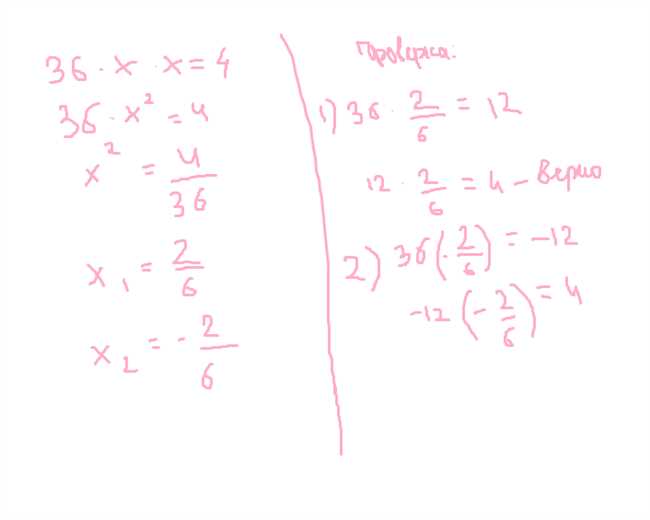 36 · x · x = 4
36 · x² = 4
x² = 4/36
x₁ = 2/6
x₂ = - 2/6
Проверка:
1) 36 · 2/6 = 12
12 · 2/6 = 4 - Верно
2) 36(- 2/6) = -12
-12(- 2/6) = 4